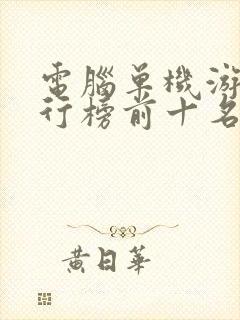 電腦單機游
行榜前十名
黃日華